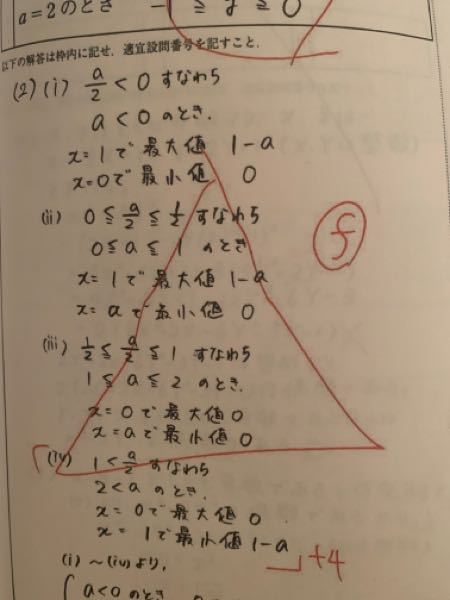 a=2のとき
≦ y ≦ 0
以下の解答は枠内に記せ. 適宜設問番号を記すこと.
(2) (i) a/2 < 0 すなわち
a < 0 のとき.
x=1で 最大値 1-a
x=0で 最小値 0
(ii) 0 ≦ a/2 ≦ 1/2 すなわち
0 ≦ a ≦ 1 のとき
x=1で 最大値 1-a
x=aで最小値 0
(iii) 1/2 ≦ a/2 ≦ 1 すなわち
1 ≦ a ≦ 2 のとき.
x=0で最大値 0
x=aで最小値 0
(iv) 1 < a/2 すなわち
2 < a のとき.
x=0で最大値 0.
x=1で最小値 1-a
+4
(i) ~ (iv) より,
a<0 のとき